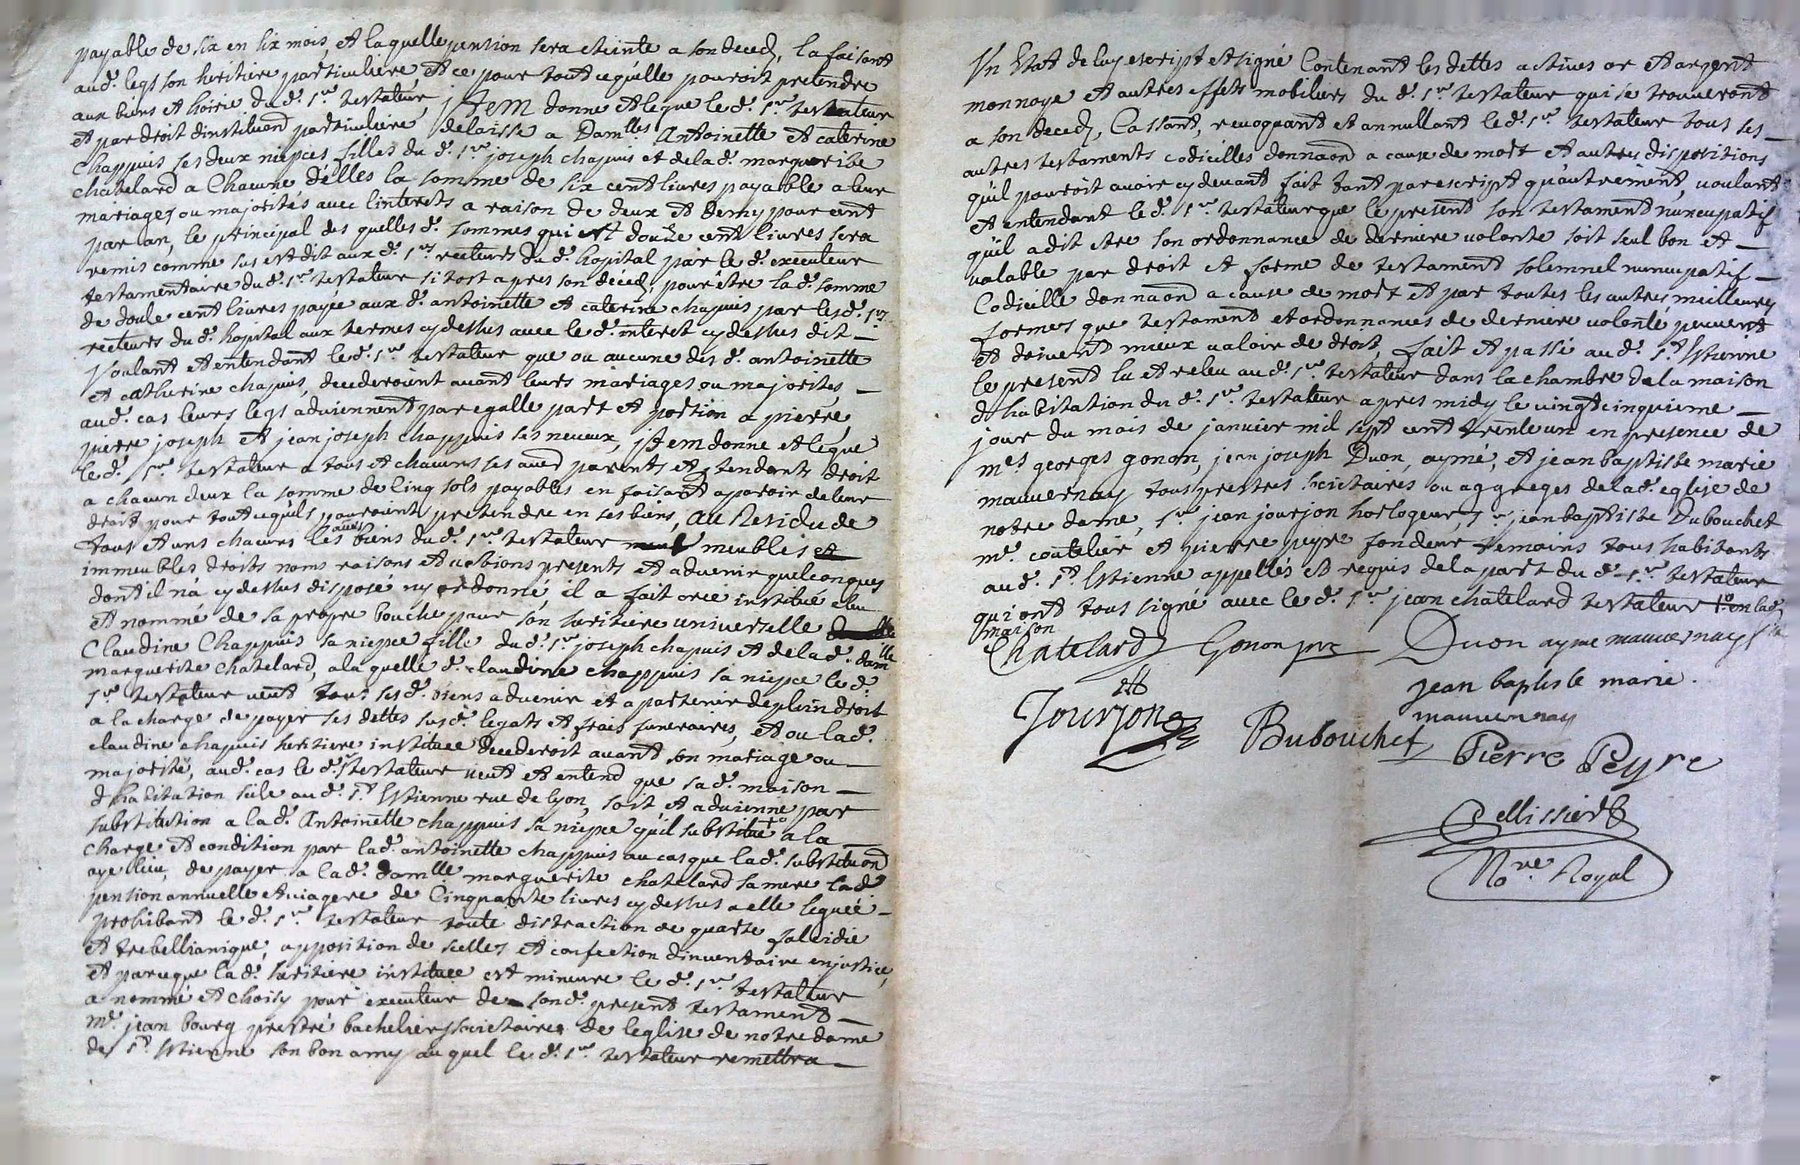 payable de six en six mois, et laquelle pension sera eteinte a son deced, la faisant
aud. legs son heritiere particuliere et ce pour tout ce qu'elle pouroit pretendre
aux biens et hoirie dud. sr. testateur, jtem donne et legue le d. sr. testateur
et par droit dinstituond particuliere delaisse a Damlles Antoinette et caterine
Chappuis ses deux niepces filles du d. sr. joseph chapuis et de la d. marguerite
chatelard a Chacune d'elles la somme de six cent livres payable a leur
mariages ou majorités avec l'interets a raison de deux et demy pour cent
par an, le principal des quelles d. sommes qui est douze cent livres sera
remis comme sus est dit aux d. srs recteurs du d. hopital par le d. executeur
testamentaire du d. sr. testateur si tost apres son deced, pour être la d. somme
de douse cent livres payée aux d. antoinette et caterine chapuis par les d. srs.
recteurs du d. hopital aux termes cy dessus avec le d. interet cy dessus dit
Voulant et entendant le d. sr. testateur que ou aucune des d. antoinette
et catherine chapuis, decederoient avant leurs mariages ou majorités
aud. cas leurs legs adviennent par egalle part et portion a pierre,
pierre joseph et jean joseph chappuis ses neveux, jtem donne et legue
le d. sr. testateur a tous et chacuns ses aud parents et tendants droit
a chacun deux la somme de cinq sols payables en faisant aparoir de leur
droit pour tout ce qu'ils pouroient pretendre en ses biens, au Residu de
tous et uns chacuns les autres biens du d. sr. testateur meubles et
immeubles droits noms raisons et actions presents et advenir quelconques
dont il n'a cy dessus disposé ny ordonné, il a fait cree institué eleu
et nommé de sa propre bouche pour son heritiere universelle
Claudine Chappuis sa niepce fille du d. sr. joseph chapuis et de la d. damlle
marguerite chatelard, a la quelle d. claudine chappuis sa niepce le d.
sr. testateur veut tous ses d. biens advenir et apartenir de plein droit
a la charge de payer ses dettes sus d. legats et frais funeraires, et ou la d.
claudine chapuis heritiere instituee decederoit avant son mariage ou
majorité, aud. cas le d. sr testateur veut et entend que sa d. maison
d'habitation size au d. st Estienne rue de lyon, soit et advienne par
substitution a la d. Antoinette chappuis sa niepce qu'il substitue a la
charge et condition par la d. antoinette chappuis au cas que la d. substituond
aye lieu, de payer a la d. damlle marguerite chatelard sa mere lad.
pension annuelle et viagere de Cinquante livres cy dessus a elle leguée
prohibant le d. sr. testateur toute distraction de quarte falcidie
et trebellianique, apposition de scelles et confection d'inventaire en justice,
et parceque la d. heritiere instituee est mineure le d. sr. testateur
a nommé et choisy pour executeur de son d. present testament
mr. jean bourg prestre bachelier societaire de l'eglise de notre dame
de st. Estienne son bon amy au quel le d. sr. testateur remettra
Vn Etat de luy escript et signé Contenant les dettes actives or et argent
monnoye et autres effets mobiliers du d. sr testateur qui se trouveront
a son deced, Cassant, revoquant et annullant le d. sr. testateur tous ses
autres testaments codicilles donnaond a cause de mort et autres dispositions
qu'il pouroit avoir cy devant fait tant par escript qu'autrement, voulant
et entendant le d. sr. testateur que le present son testament nuncupatif
qu'il a dit etre son ordonnance de derniere volonte soit seul bon et
valable par droit et forme de testament solemnel nuncupatif
Codicille donnaond a cause de mort et par toutes les autres meilleures
formes que testament et ordonnances de derniere volonté peuvent
et doivent mieux valoir de droit, fait et passé au d. st Estienne
le present lu et releu au d. sr. testateur dans la chambre de la maison
d'habitation du d. sr. testateur apres midy le vingtcinquieme
jour du mois de janvier mil sept cent trente un en presence de
mes georges gonon, jean joseph Duon, aymé, et jean baptiste marie
mauvernay tous prestres societaires ou aggreges de la d. eglise de
notre dame, sr. jean jourjon horlogeur, sr jean baptiste Dubouchet
mr. coutelier et pierre peyre fondeur temoins tous habitants
au d. st. Estienne appellés et requis de la part du d. sr. testateur
qui ont tous signé avec le d. sr. jean chatelard testateur en la d.
maison
Chatelard Gonon pre Duon ayme mauvernay
jean baptiste marie
mauvernay
Jourjon Dubouchet Pierre Peyre
Pellissier
Nore. Royal